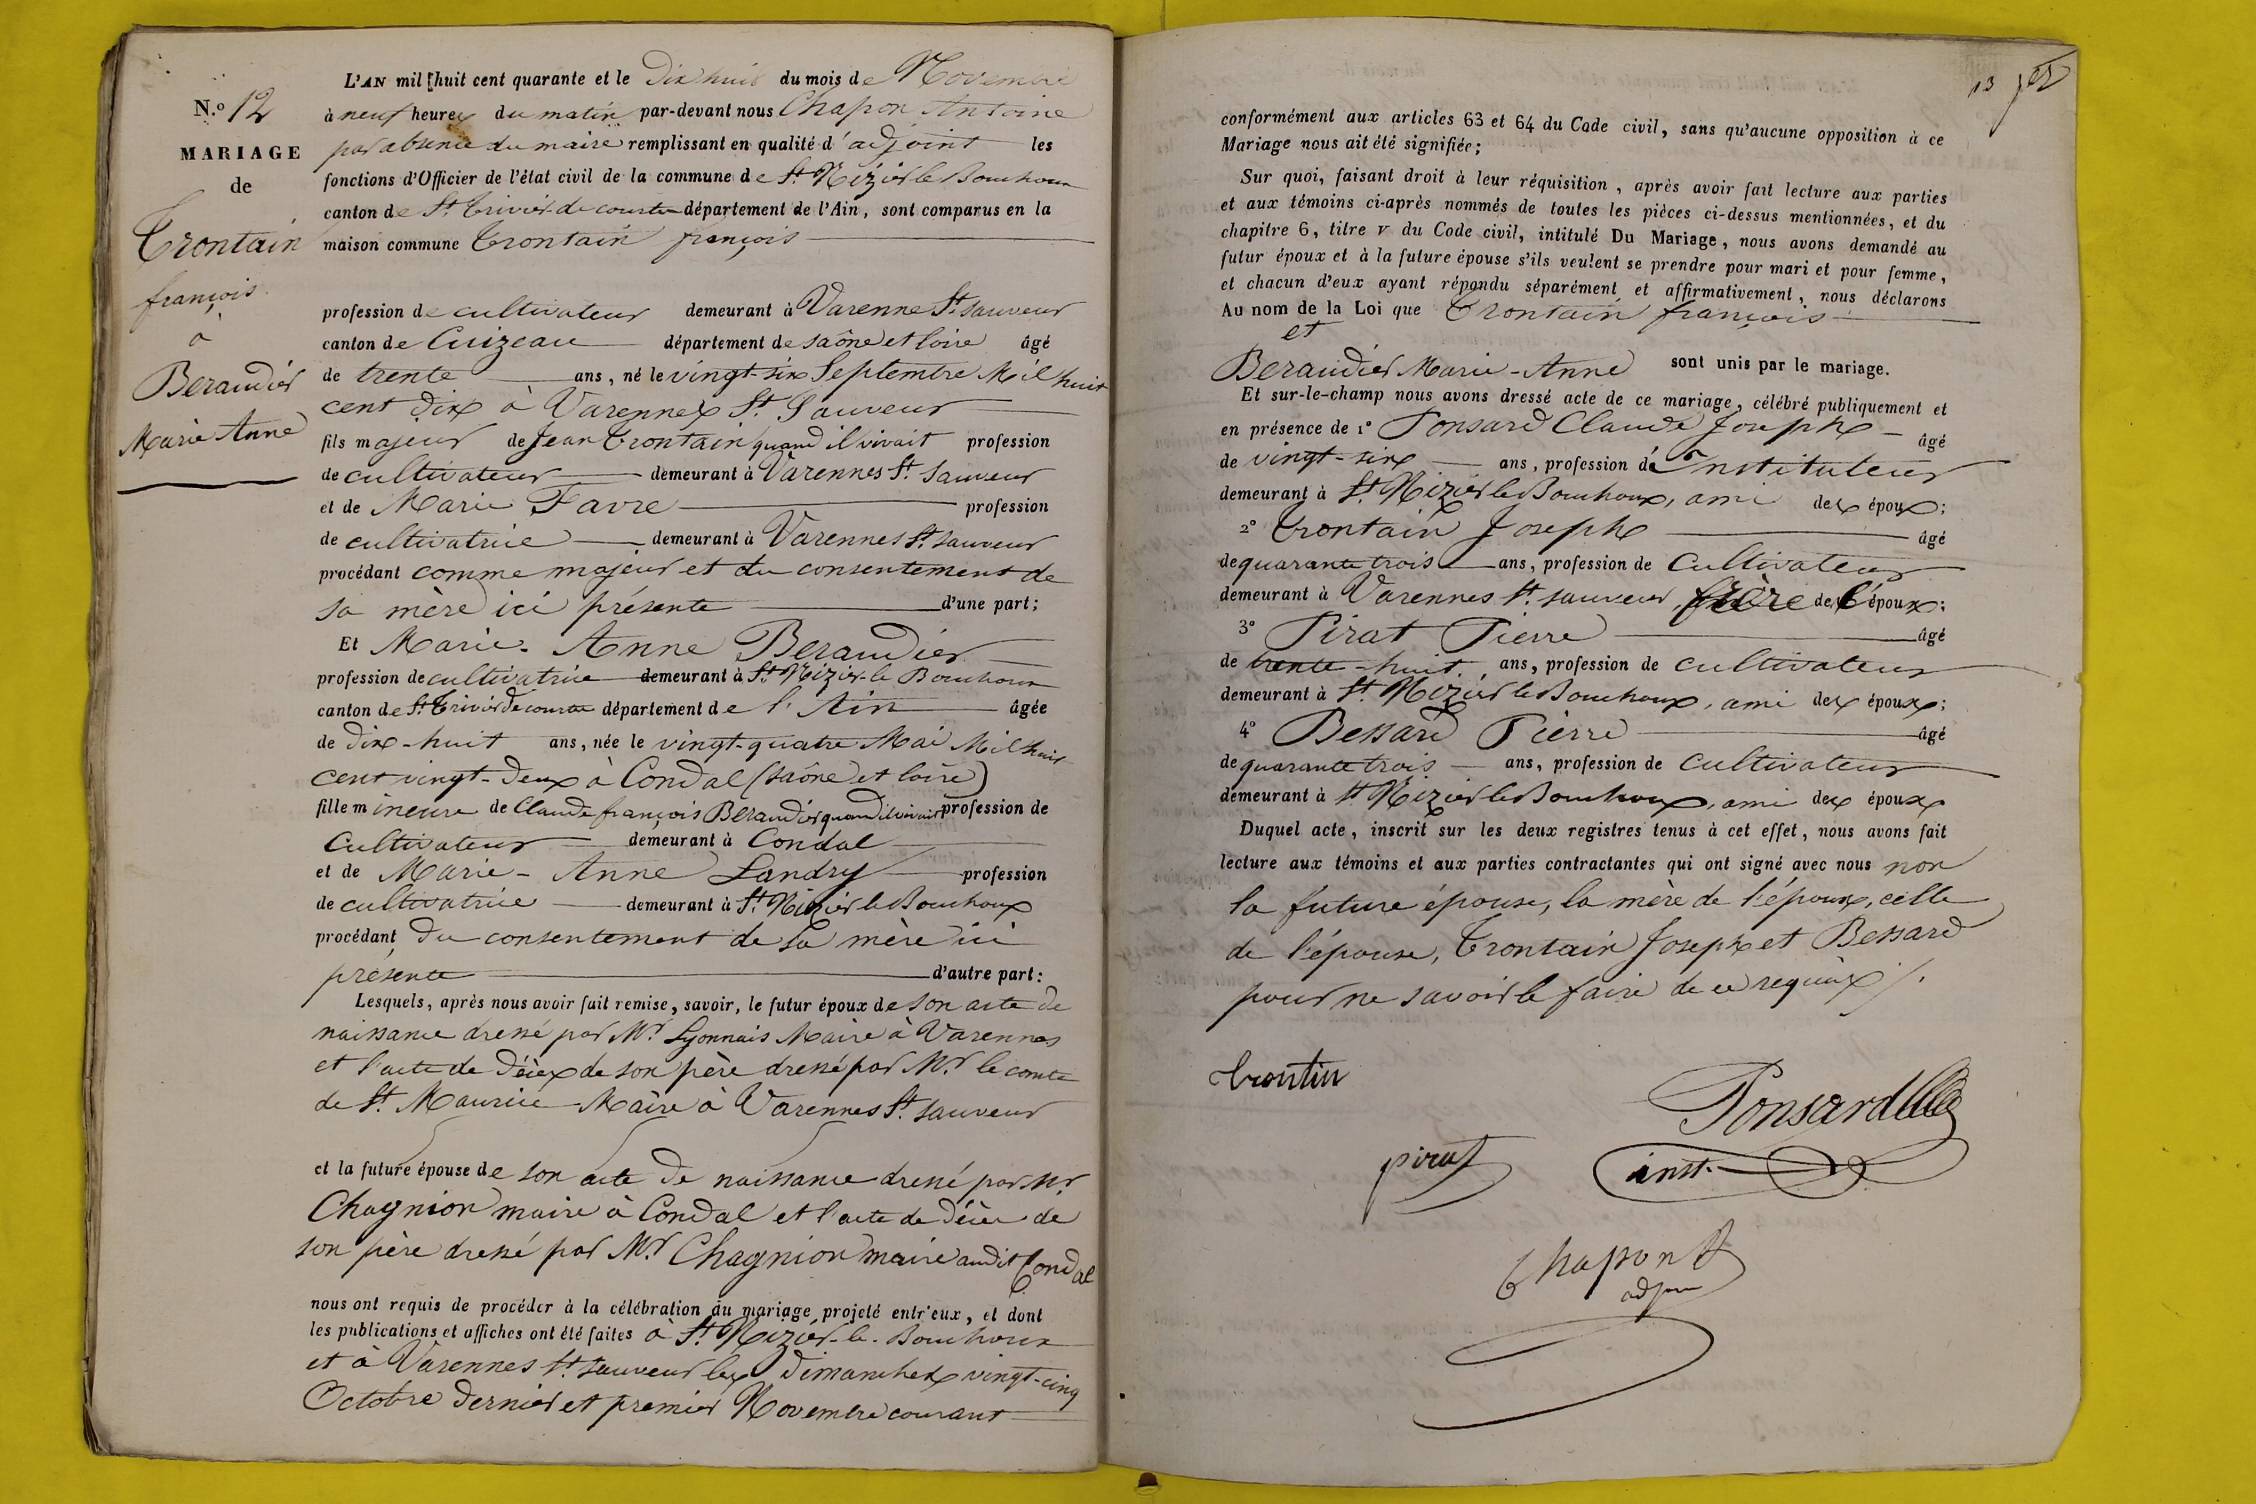 N.o 12
MARIAGE
de
Trontain
françois
à
Beraudier
Marie Anne
L'AN mil huit cent quarante et le Dix huit du mois de Novembre
à neuf heures du matin par-devant nous Chapon Antoine
par absence du maire remplissant en qualité d'adjoint les
fonctions d'Officier de l'état civil de la commune de St Nizier le Bouchoux
canton de St Trivier de courtes département de l'Ain, sont comparus en la
maison commune Trontain françois
profession de cultivateur demeurant à Varenne St Sauveur
canton de Cuizeau département de saône et loire âgé
de trente ans, né le vingt-six Septembre Mil huit
cent dix à Varennes St Sauveur
fils majeur de Jean Trontain quand il vivait profession
de cultivateur demeurant à Varennes St Sauveur
et de Marie Favre profession
de cultivatrice demeurant à Varennes St sauveur
procédant comme majeur et du consentement de
sa mère ici présente d'une part;
Et Marie-Anne Beraudier
profession de cultivatrice demeurant à St Nizier-le Bouchoux
canton de St Trivier de courtes département de l'Ain âgée
de dix-huit ans, née le vingt-quatre Mai Mil huit
cent vingt-deux à Condal (saône et loire)
fille mineure de Claude françois Beraudier quand il vivait profession de
Cultivateur demeurant à Condal
et de Marie-Anne Landry profession
de cultivatrice demeurant à St Nizier le Bouchoux
procédant du consentement de sa mère ici
présente d'autre part:
Lesquels, après nous avoir fait remise, savoir, le futur époux de son acte de
naissance dressé par Mr Lyonnais Maire à Varennes
et l'acte de décès de son père dressé par Mr le comte
de St Maurice Maire à Varennes St Sauveur
et la future épouse de son acte de naissance dressé par Mr
Chagnion maire à Condal et l'acte de décès de
son père dressé par Mr Chagnion maire audit Condal
nous ont requis de procéder à la célébration du mariage projeté entr'eux, et dont
les publications et affiches ont été faites à St Nizier-le-Bouchoux
et à Varennes St sauveur les Dimanches vingt-cinq
Octobre dernier et premier Novembre courant
13
conformément aux articles 63 et 64 du Code civil, sans qu'aucune opposition à ce
Mariage nous ait été signifiée;
Sur quoi, faisant droit à leur réquisition, après avoir fait lecture aux parties
et aux témoins ci-après nommés de toutes les pièces ci-dessus mentionnées, et du
chapitre 6, titre v du Code civil, intitulé Du Mariage, nous avons demandé au
futur époux et à la future épouse s'ils veulent se prendre pour mari et pour femme,
et chacun d'eux ayant répondu séparément et affirmativement, nous déclarons
Au nom de la Loi que Trontain françois
et
Beraudier Marie-Anne sont unis par le mariage.
Et sur-le-champ nous avons dressé acte de ce mariage, célébré publiquement et
en présence de 1o Ponsard Claude Joseph âgé
de vingt-six ans, profession d'Instituteur
demeurant à St Nizier le Bouchoux, ami des époux;
2o Trontain Joseph âgé
de quarante trois ans, profession de Cultivateur
demeurant à Varennes St sauveur, frère de l'époux;
3o Pirat Pierre âgé
de trente-huit ans, profession de cultivateur
demeurant à St Nizier le Bouchoux, ami des époux;
4o Bessard Pierre âgé
de quarante trois ans, profession de Cultivateur
demeurant à St Nizier le Bouchoux, ami des époux
Duquel acte, inscrit sur les deux registres tenus à cet effet, nous avons fait
lecture aux témoins et aux parties contractantes qui ont signé avec nous non
la future épouse, la mère de l'époux, celle
de l'épouse, Trontain Joseph et Bessard
pour ne savoir le faire de ce requis
trontin
Ponsard
inst.
pirat
Chapon
adjoin